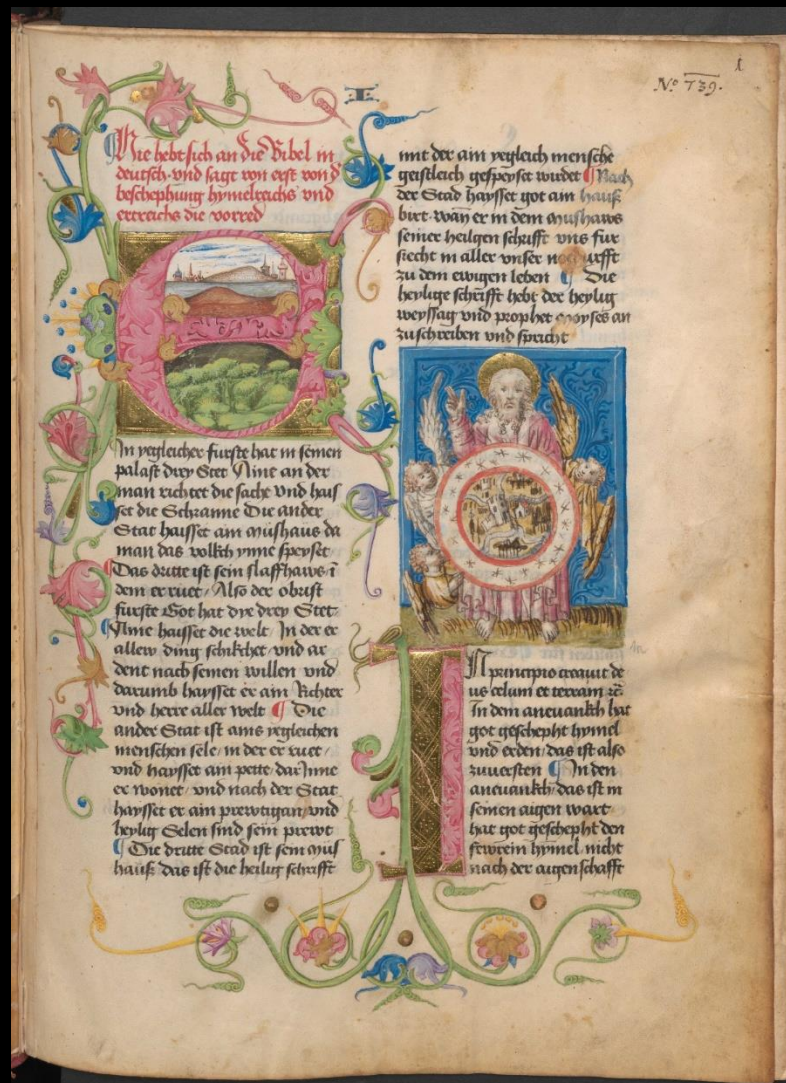 I
1
No 739.
Hie hebt sich an die Bibel in
deutsch · vnd sagt von erst von d
beschephung hymelreichs vnd
ertreichs die vorred
Ein yegleicher furste hat in seinen
palast drey Stet Aine an der
man richtet die sache vnd hais
set die Schranne Die ander
Stat haisset ain mushaus da
man das volkch ynne speyset
Das dritte ist sein slaffhaws · i
dem er ruet / Also der obrist
furste Got hat dye drey Stet
Aine haisset die welt / In der er
allew ding schikchet · vnd ar
dent nach seinen willen vnd
darumb haysset er ain Richter
vnd herre aller welt Die
ander Stat ist ains yegleichen
menschen sele / in der er ruet /
vnd haysset ain pette / dar Inne
er wonet / vnd nach der Stat
haysset er ain prewtigan / vnd
heylig Selen sind sein prewt
Die dritte Stad ist sein mus
hauß das ist die heilig schrifft
mit der ain yegleich mensche
geistleich gespeyset wirdet Nach
der Stad haysset got ain hauß
birt · wan er in dem mushaws
seiner heiligen schrifft vns fur
siecht in aller vnser
zu dem ewigen leben Die
heylige schrifft hebt der heylig
weyssag vnd prophet moyses an
zuschreiben vnd spricht
In principio creauit de
us celum et terram
In dem aneuankch hat
got geschepht hymel
vnd erden / das ist also
zuuersten In den
aneuankch / das ist in
seinen aigen wart
hat got geschepht den
fewrein hymel · nicht
nach der augen schafft